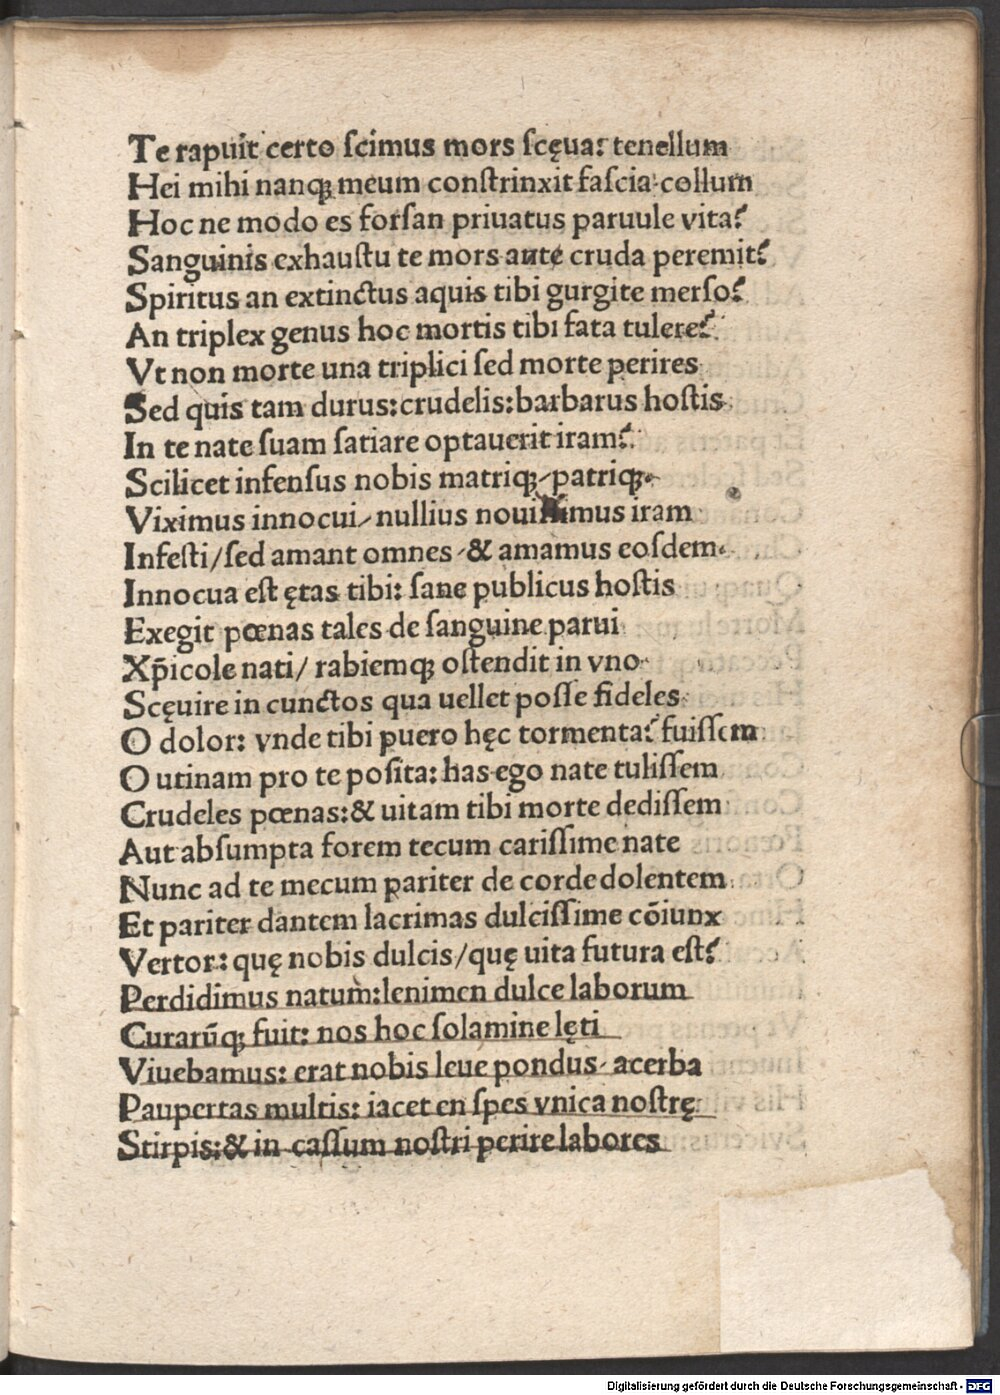 Te rapuit certo ſcimus mors ſcęua: tenellum
Hei mihi nanq̃ meum conſtrinxit faſcia collum
Hoc ne modo es forſan priuatus paruule vita?
Sanguinis exhauſtu te mors ante cruda peremit?
Spiritus an extinctus aquis tibi gurgite merſo?
An triplex genus hoc mortis tibi fata tulere?
Vt non morte una triplici ſed morte perires
Sed quis tam durus: crudelis: barbarus hoſtis
In te nate ſuam ſatiare optauerit iram?
Scilicet infenſus nobis matriq̃/ patriq̃.
Viximus innocui/ nullius nouiſſimus iram
Infeſti/ ſed amant omnes/ & amamus eoſdem.
Innocua eſt ętas tibi: ſane publicus hoſtis
Exegit pœnas tales de ſanguine parui
Xp̄icole nati/ rabiemq̃ oſtendit in vno
Scęuire in cunctos qua uellet poſſe fideles
O dolor: vnde tibi puero hęc tormenta? fuiſſem
O utinam pro te poſita: has ego nate tuliſſem
Crudeles pœnas: & uitam tibi morte dediſſem
Aut abſumpta forem tecum cariſſime nate
Nunc ad te mecum pariter de corde dolentem
Et pariter dantem lacrimas dulciſſime cōiunx
Vertor: quę nobis dulcis/ quę uita futura eſt?
Perdidimus natum: lenimen dulce laborum
Curarūq̃ fuit: nos hoc ſolamine lęti
Viuebamus: erat nobis leue pondus/ acerba
Paupertas multis: iacet en ſpes vnica noſtrę
Stirpis: & in caſſum noſtri perire labores
Digitalisierung gefördert durch die Deutsche Forschungsgemeinschaft - DFG